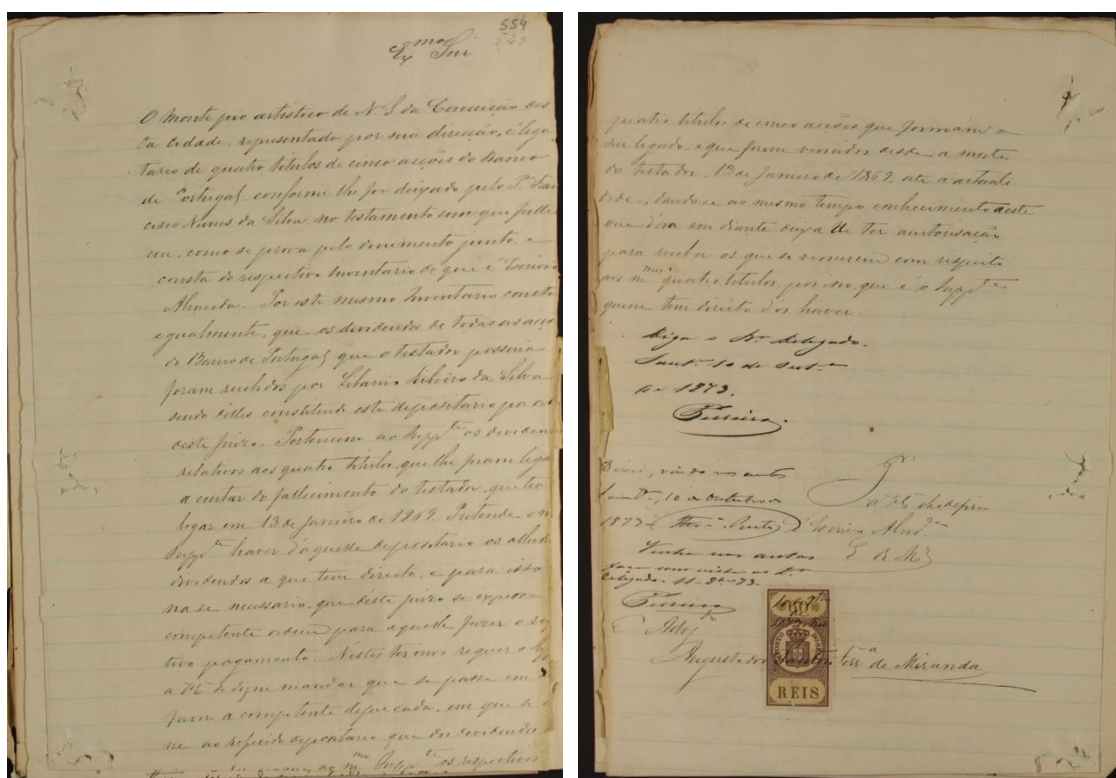 554
Exmo Snr
O Monte pio artistico de N. S. da Conceição des
ta cidade, representado por sua direcção, é lega
tario de quatro titulos de cinco acções do Banco
de Portugal, conforme lhe foi deixado pelo Pe Fran
cisco Nunes da Silva, no testamento com que falle
ceu, como se prova pelo documento junto, e
consta do respectivo inventario de que é Escrivão
Almeida. Por este mesmo Inventario consta
egualmente, que os dividendos de todas as acç
do Banco de Portugal que o testador possuia
foram recebidos por Libanio Ribeiro da Silva
sendo delles constituido este depositario por
deste juizo. Pertencem ao Suppte os dividen
relativos aos quatro titulos que lhe foram lega
a contar do fallecimento do testador, que teve
logar em 13 de Janeiro de 1869. Pretende o
Suppte haver d'aquelle depositario os allud
dividendos a que tem direito, e para isso
na se necessario, que deste juizo se expeça
competente ordem para aquelle fazer o res
tivo pagamento. Nestes termos requer o Supp
a VE se digne mandar que se passe em
favor a competente deprecada, em que se
ne ao referido depositario que dos dividendos
ao mmo Suppte os respectivos
quatro titulos de cinco acções que formam o
seu legado e que foram vencidos desde a morte
do testador, 13 de Janeiro de 1869, até á actuali
dade, dando-se ao mesmo tempo conhecimento a este
que d'ora em diante deixa de ter auctorisação
para receber os que se vencerem com respeito
aos mmos quatro titulos, por isso que é o Suppte
quem tem direito a os haver.
Diga o Dr Delegado.
Santm 10 de Outbro
de 1873.
Ferreira.
P
a VE lhe defira
Escrivão Almda
E R Mce
10 de Outubro de
1873
Venha nos autos
com vista ao Dr
Delegado. 11-8bro-73.
Ferreira
Advo
Augusto dos Santos Ferra de Miranda
IMPOSTO DO SELLO
REIS